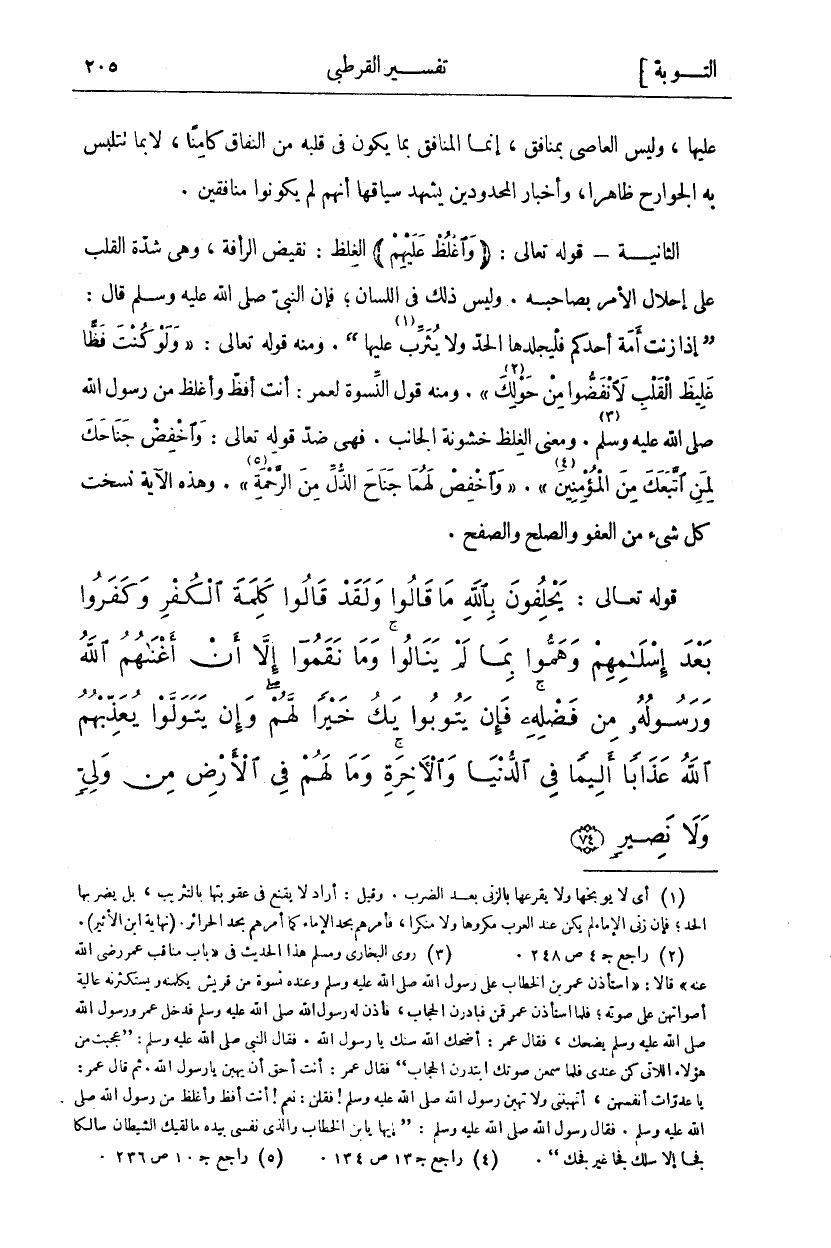 التوبة ] تفسير القرطبى ٢٠٥
عليها ، وليس العاصى بمنافق ، إنما المنافق بما يكون فى قلبه من النفاق كامنًا ، لا بما تتلبس
به الجوارح ظاهرا، وأخبار المحدودين يشهد سياقها أنهم لم يكونوا منافقين .
الثانيــة — قوله تعالى : ﴿ وَٱغْلُظْ عَلَيْهِمْ ﴾ الغلظ : نقيض الرأفة ، وهى شدّة القلب
على إحلال الأمر بصاحبه . وليس ذلك فى اللسان ؛ فإن النبىّ صلى الله عليه وسلم قال :
” إذا زنت أَمَة أحدكم فليجلدها الحدّ ولا يُثَرِّب (١) عليها “ . ومنه قوله تعالى : « وَلَوْ كُنْتَ فَظًّا
غَلِيظَ الْقَلْبِ لَٱنْفَضُّوا مِنْ حَوْلِكَ (٢) » . ومنه قول النِّسوة لعمر : أنت أفظّ وأغلظ من رسول الله
صلى الله عليه وسلم (٣) . ومعنى الغلظ خشونة الجانب . فهى ضدّ قوله تعالى : وَٱخْفِضْ جَنَاحَكَ
لِمَنِ ٱتَّبَعَكَ مِنَ الْمُؤْمِنِينَ (٤) » . « وَٱخْفِضْ لَهُمَا جَنَاحَ الذُّلِّ مِنَ الرَّحْمَةِ (٥) » . وهذه الآية نسخت
كل شىء من العفو والصلح والصفح .
قوله تعـالى : يَحْلِفُونَ بِٱللَّهِ مَا قَالُوا وَلَقَدْ قَالُوا كَلِمَةَ ٱلْكُفْرِ وَكَفَرُوا
بَعْدَ إِسْلَٰمِهِمْ وَهَمُّوا بِمَا لَمْ يَنَالُوا ۚ وَمَا نَقَمُوٓا إِلَّآ أَنْ أَغْنَىٰهُمُ ٱللَّهُ
وَرَسُولُهُۥ مِن فَضْلِهِۦ ۚ فَإِن يَتُوبُوا يَكُ خَيْرًا لَّهُمْ ۖ وَإِن يَتَوَلَّوْا يُعَذِّبْهُمُ
ٱللَّهُ عَذَابًا أَلِيمًا فِى ٱلدُّنْيَا وَٱلْآخِرَةِ ۚ وَمَا لَهُمْ فِى ٱلْأَرْضِ مِن وَلِىٍّ
وَلَا نَصِيرٍ ﴿٧٤﴾
(١) أى لا يوبخها ولا يقرعها بالزنى بعـد الضرب . وقيل : أراد لا يقنع فى عقوبتها بالتثريب ، بل يضربها
الحد ؛ فإن زنى الإماء لم يكن عند العرب مكروها ولا منكرا ، فأمرهم بحد الإماء كما أمرهم بحد الحرائر. (نهاية ابن الأثير).
(٢) راجع جـ ٤ ص ٢٤٨ . (٣) روى البخارى ومسلم هذا الحديث فى «باب مناقب عمر رضى الله
عنه» قالا : «استأذن عمر بن الخطاب على رسول الله صلى الله عليه وسلم وعنده نسوة من قريش يكلمنه ويستكثرنه عالية
أصواتهن على صوته ؛ فلما استأذن عمر قمن فبادرن الحجاب ، فأذن له رسول الله صلى الله عليه وسلم فدخل عمر ورسول الله
صلى الله عليه وسلم يضحك ، فقال عمر : أضحك الله سنك يا رسول الله . فقال النبي صلى الله عليه وسلم : ”عجبت من
هؤلاء اللاتى كن عندى فلما سمعن صوتك ابتدرن الحجاب“ فقال عمر : أنت أحق أن يهبن يا رسول الله . ثم قال عمر :
يا عدوّات أنفسهن ، أتهبننى ولا تهبن رسول الله صلى الله عليه وسلم ! فقلن : نعم ! أنت أفظ وأغلظ من رسول الله صلى
الله عليه وسلم . فقال رسول الله صلى الله عليه وسلم : ” إيها يابن الخطاب والذى نفسى بيده ما لقيك الشيطان سالكا
فجا إلا سلك فجا غير فجك “ . (٤) راجع جـ ١٣ ص ١٣٤ . (٥) راجع جـ ١٠ ص ٢٣٦ .